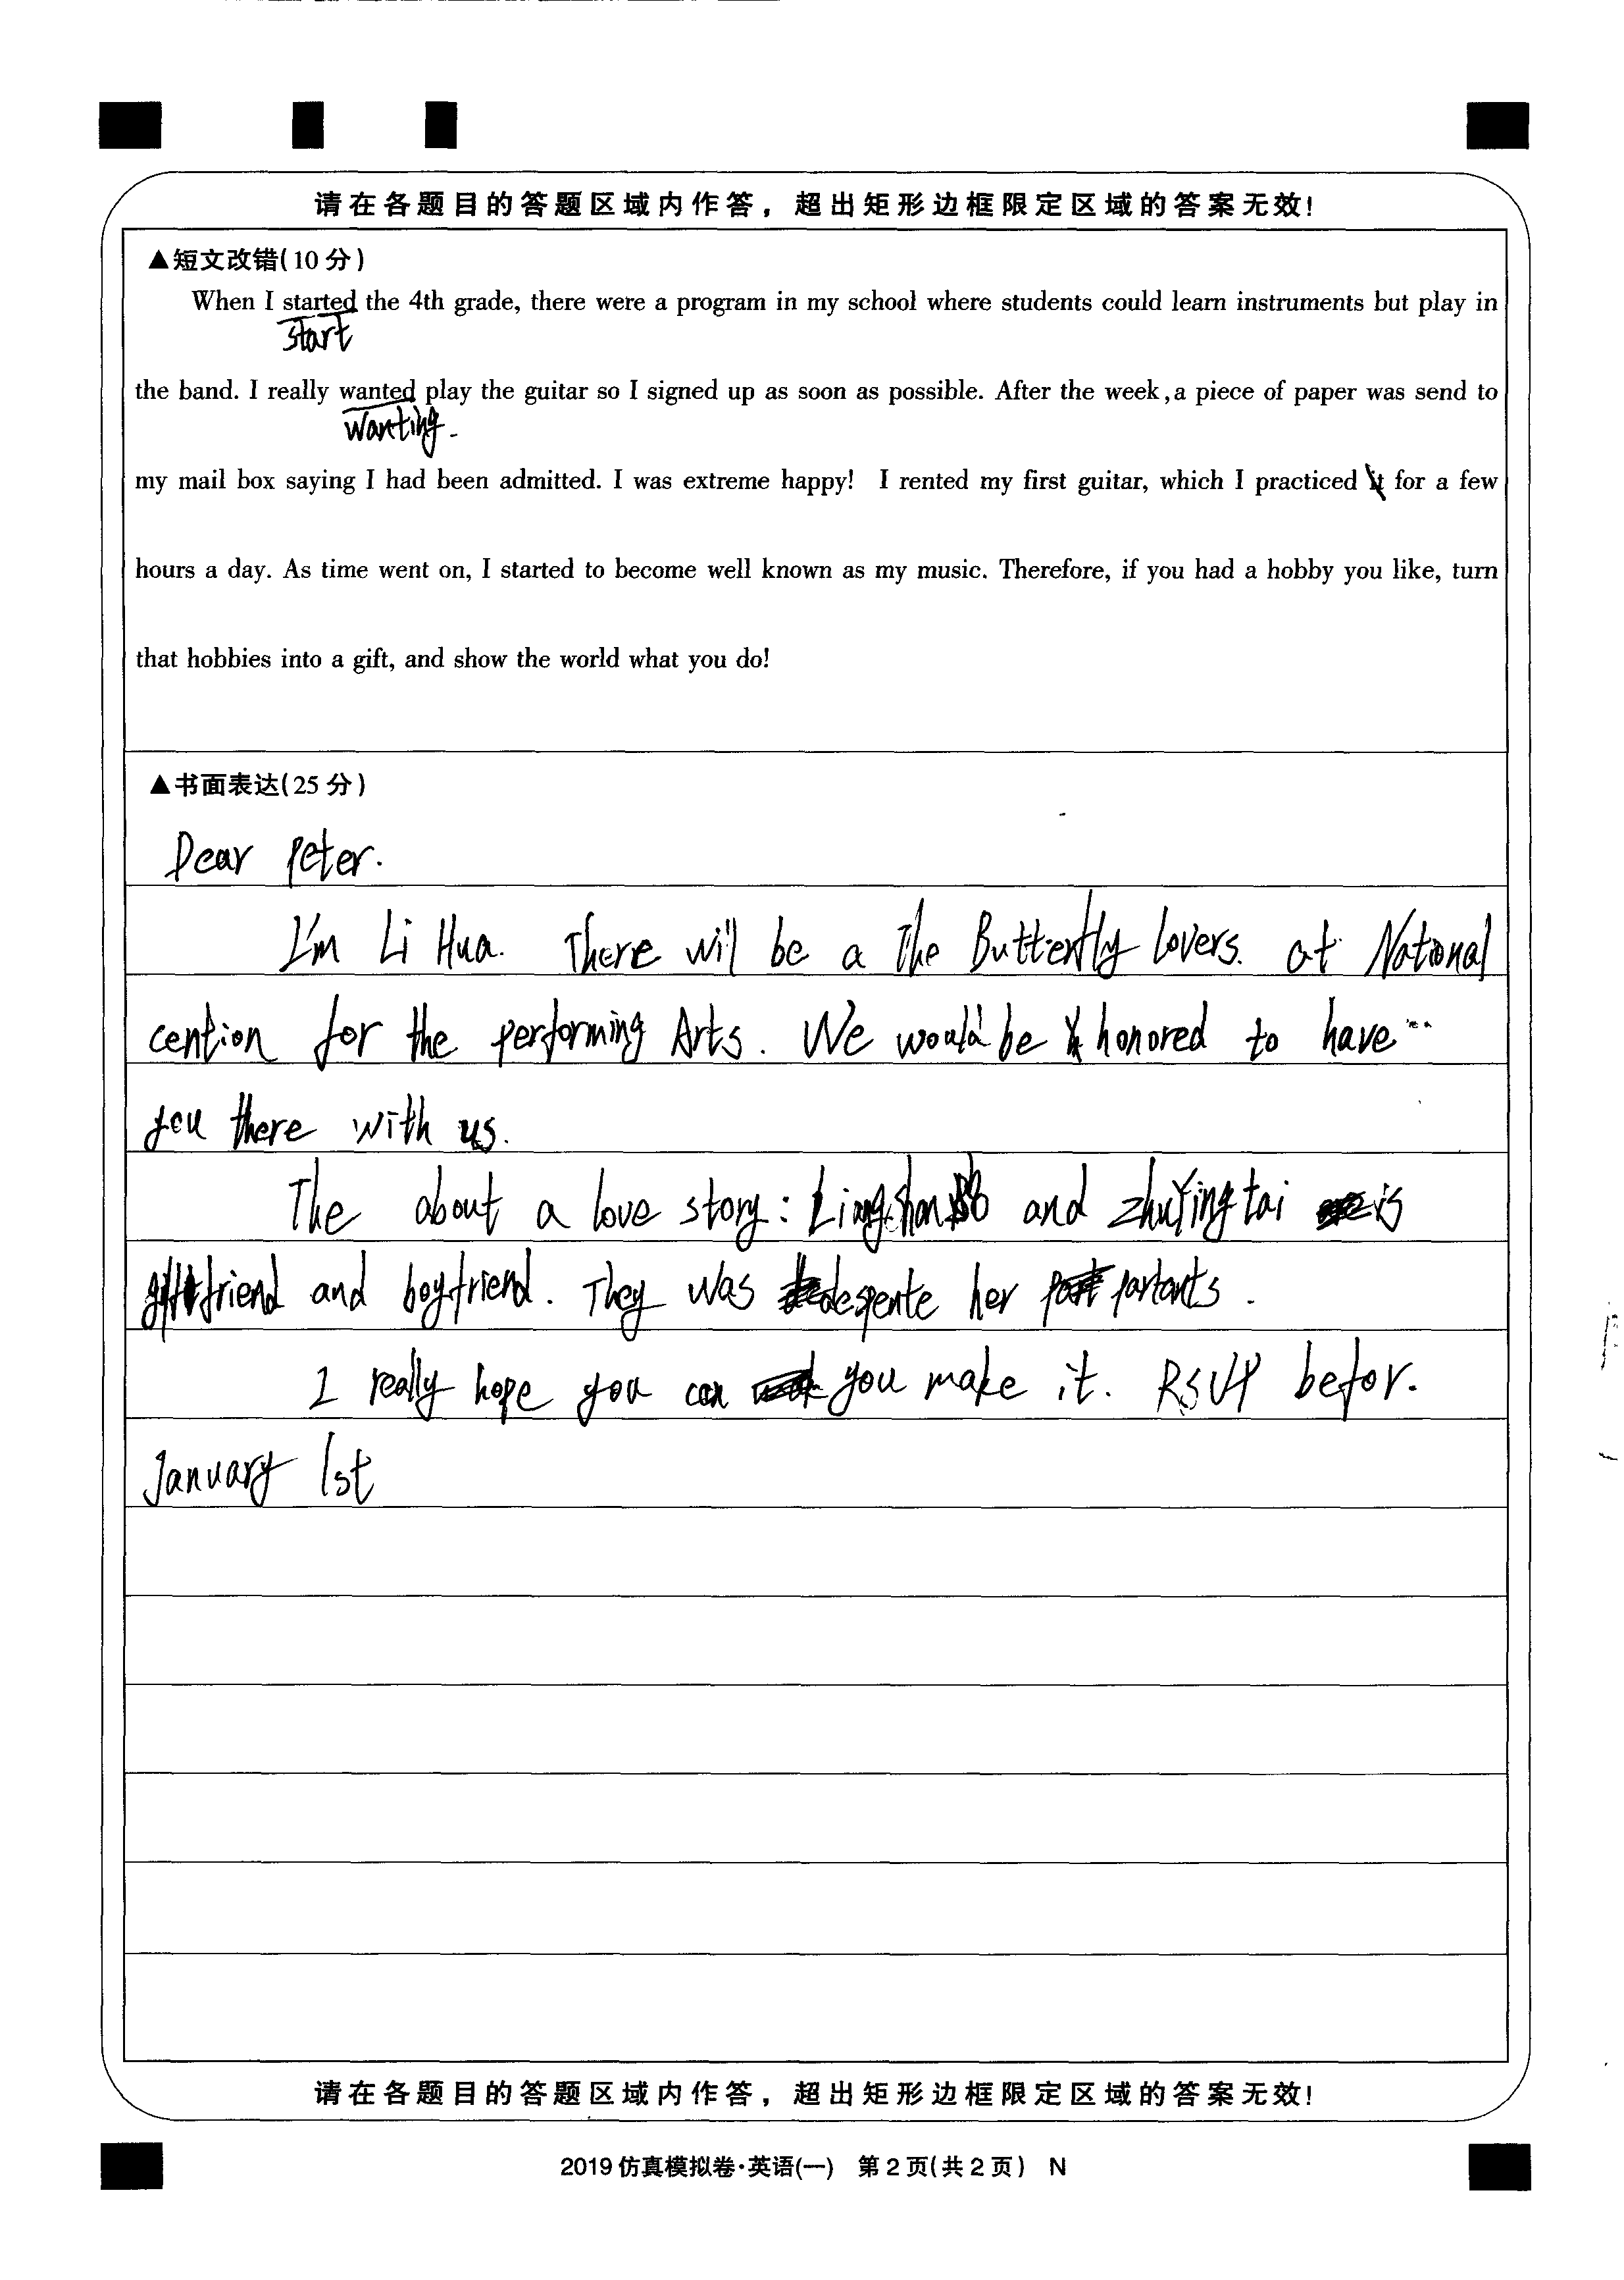 请在各题目的答题区域内作答，超出矩形边框限定区域的答案无效！
▲短文改错(10分)
When I started the 4th grade, there were a program in my school where students could learn instruments but play in
start
the band. I really wanted play the guitar so I signed up as soon as possible. After the week, a piece of paper was send to
Wanting.
my mail box saying I had been admitted. I was extreme happy! I rented my first guitar, which I practiced it for a few
hours a day. As time went on, I started to become well known as my music. Therefore, if you had a hobby you like, turn
that hobbies into a gift, and show the world what you do!
▲书面表达(25分)
Dear Peter.
I'm Li Hua. There will be a The Butterfly Lovers. at National
cention for the performing Arts. We would be honored to have
you there with us.
The about a love story: Liangshan and zhuYingtai is
friend and boyfriend. They was despente her partants.
I really hope you can you make it. RSVP befor.
January 1st
请在各题目的答题区域内作答，超出矩形边框限定区域的答案无效！
2019仿真模拟卷·英语(一) 第2页(共2页) N